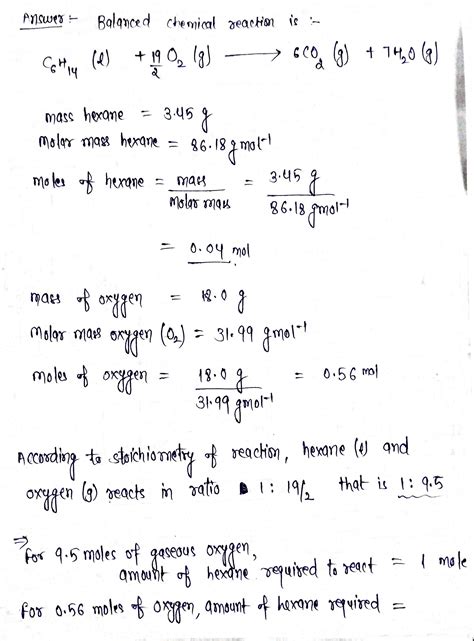 Answer :- Balanced chemical reaction is :-
C6H14 (l) + 19/2 O2 (g) ⟶ 6CO2 (g) + 7H2O (g)
mass hexane = 3.45 g
Molar mass hexane = 86.18 g mol-1
moles of hexane = mass / Molar mass = 3.45 g / 86.18 gmol-1
= 0.04 mol
mass of oxygen = 18.0 g
Molar mass oxygen (O2) = 31.99 gmol-1
moles of oxygen = 18.0 g / 31.99 gmol-1 = 0.56 mol
According to stoichiometry of reaction, hexane (l) and
oxygen (g) reacts in ratio 1 : 19/2 that is 1 : 9.5
⇒
for 9.5 moles of gaseous oxygen,
amount of hexane required to react = 1 mole
for 0.56 moles of oxygen, amount of hexane required =